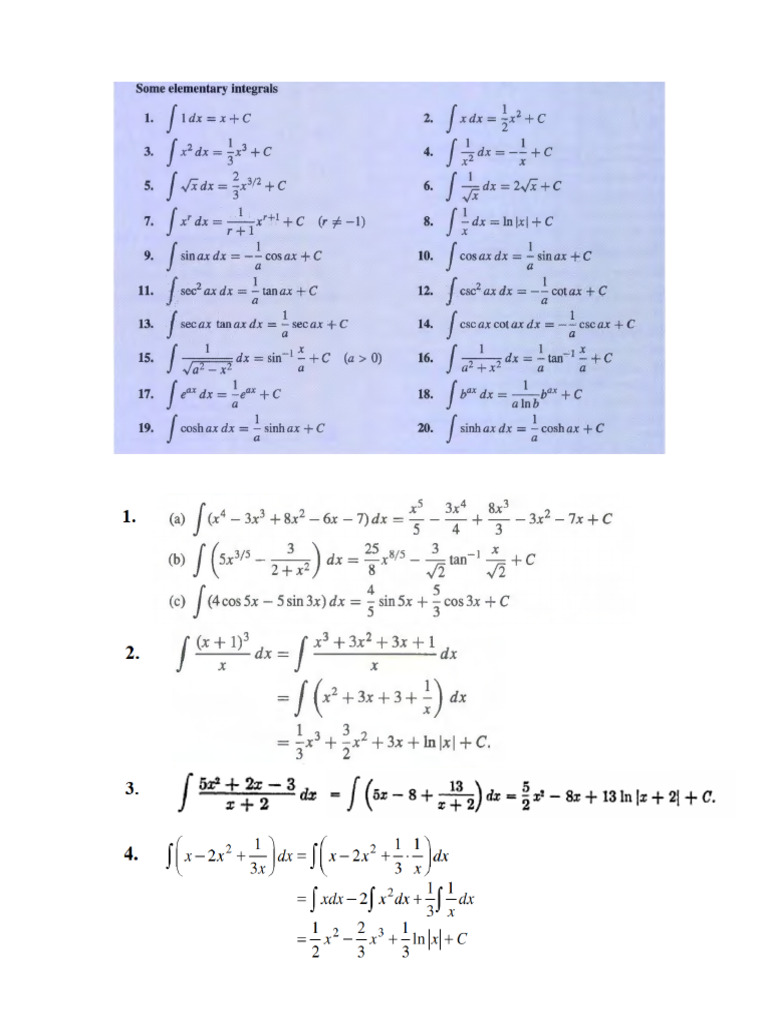 Some elementary integrals
1. ∫ 1 dx = x + C
2. ∫ x dx = 1/2 x² + C
3. ∫ x² dx = 1/3 x³ + C
4. ∫ 1/x² dx = −1/x + C
5. ∫ √x dx = 2/3 x^(3/2) + C
6. ∫ 1/√x dx = 2√x + C
7. ∫ x^r dx = 1/(r + 1) x^(r+1) + C (r ≠ −1)
8. ∫ 1/x dx = ln |x| + C
9. ∫ sin ax dx = −1/a cos ax + C
10. ∫ cos ax dx = 1/a sin ax + C
11. ∫ sec² ax dx = 1/a tan ax + C
12. ∫ csc² ax dx = −1/a cot ax + C
13. ∫ sec ax tan ax dx = 1/a sec ax + C
14. ∫ csc ax cot ax dx = −1/a csc ax + C
15. ∫ 1/√(a² − x²) dx = sin⁻¹ x/a + C (a > 0)
16. ∫ 1/(a² + x²) dx = 1/a tan⁻¹ x/a + C
17. ∫ e^(ax) dx = 1/a e^(ax) + C
18. ∫ b^(ax) dx = 1/(a ln b) b^(ax) + C
19. ∫ cosh ax dx = 1/a sinh ax + C
20. ∫ sinh ax dx = 1/a cosh ax + C
1. (a) ∫ (x⁴ − 3x³ + 8x² − 6x − 7) dx = x⁵/5 − 3x⁴/4 + 8x³/3 − 3x² − 7x + C
(b) ∫ (5x^(3/5) − 3/(2 + x²)) dx = 25/8 x^(8/5) − 3/√2 tan⁻¹ x/√2 + C
(c) ∫ (4 cos 5x − 5 sin 3x) dx = 4/5 sin 5x + 5/3 cos 3x + C
2. ∫ (x + 1)³/x dx = ∫ (x³ + 3x² + 3x + 1)/x dx
= ∫ (x² + 3x + 3 + 1/x) dx
= 1/3 x³ + 3/2 x² + 3x + ln |x| + C.
3. ∫ (5x² + 2x − 3)/(x + 2) dx = ∫ (5x − 8 + 13/(x + 2)) dx = 5/2 x² − 8x + 13 ln |x + 2| + C.
4. ∫ (x − 2x² + 1/(3x)) dx = ∫ (x − 2x² + 1/3 · 1/x) dx
= ∫ xdx − 2∫ x² dx + 1/3 ∫ 1/x dx
= 1/2 x² − 2/3 x³ + 1/3 ln|x| + C